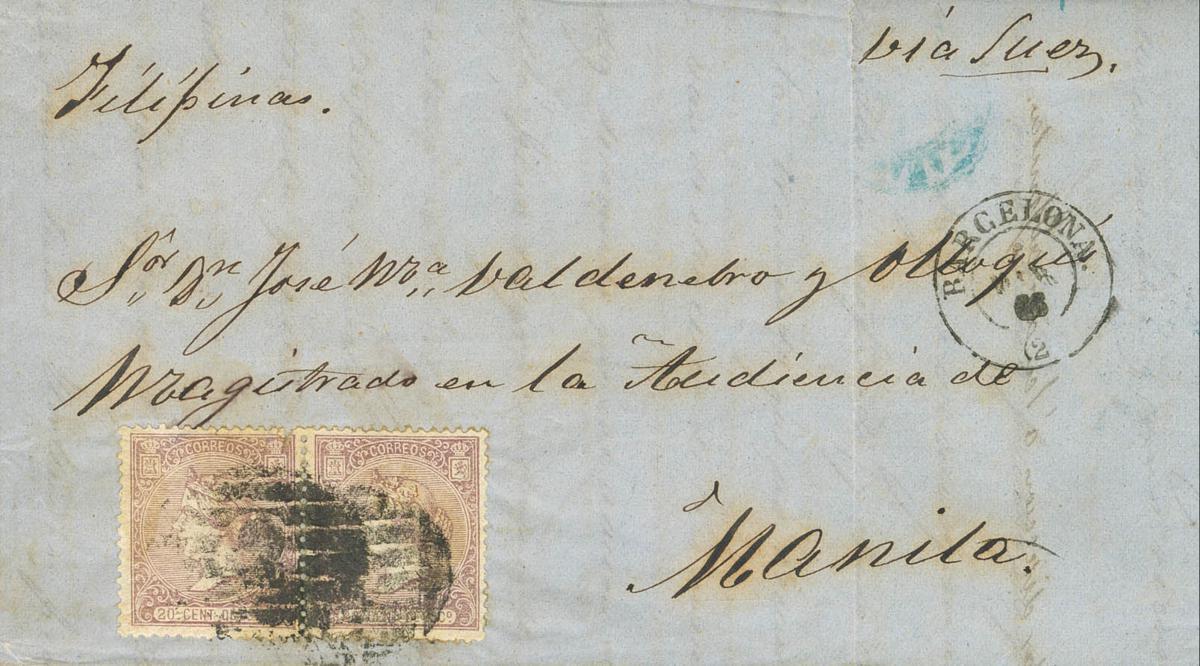 Filipinas.
via Suez,
BARCELONA.
(2)
Sor Dn José Ma Valdenebro y Olloqui
Magistrado en la Audiencia de
Manila.
CORREOS
CORREOS
20 CENT. DE